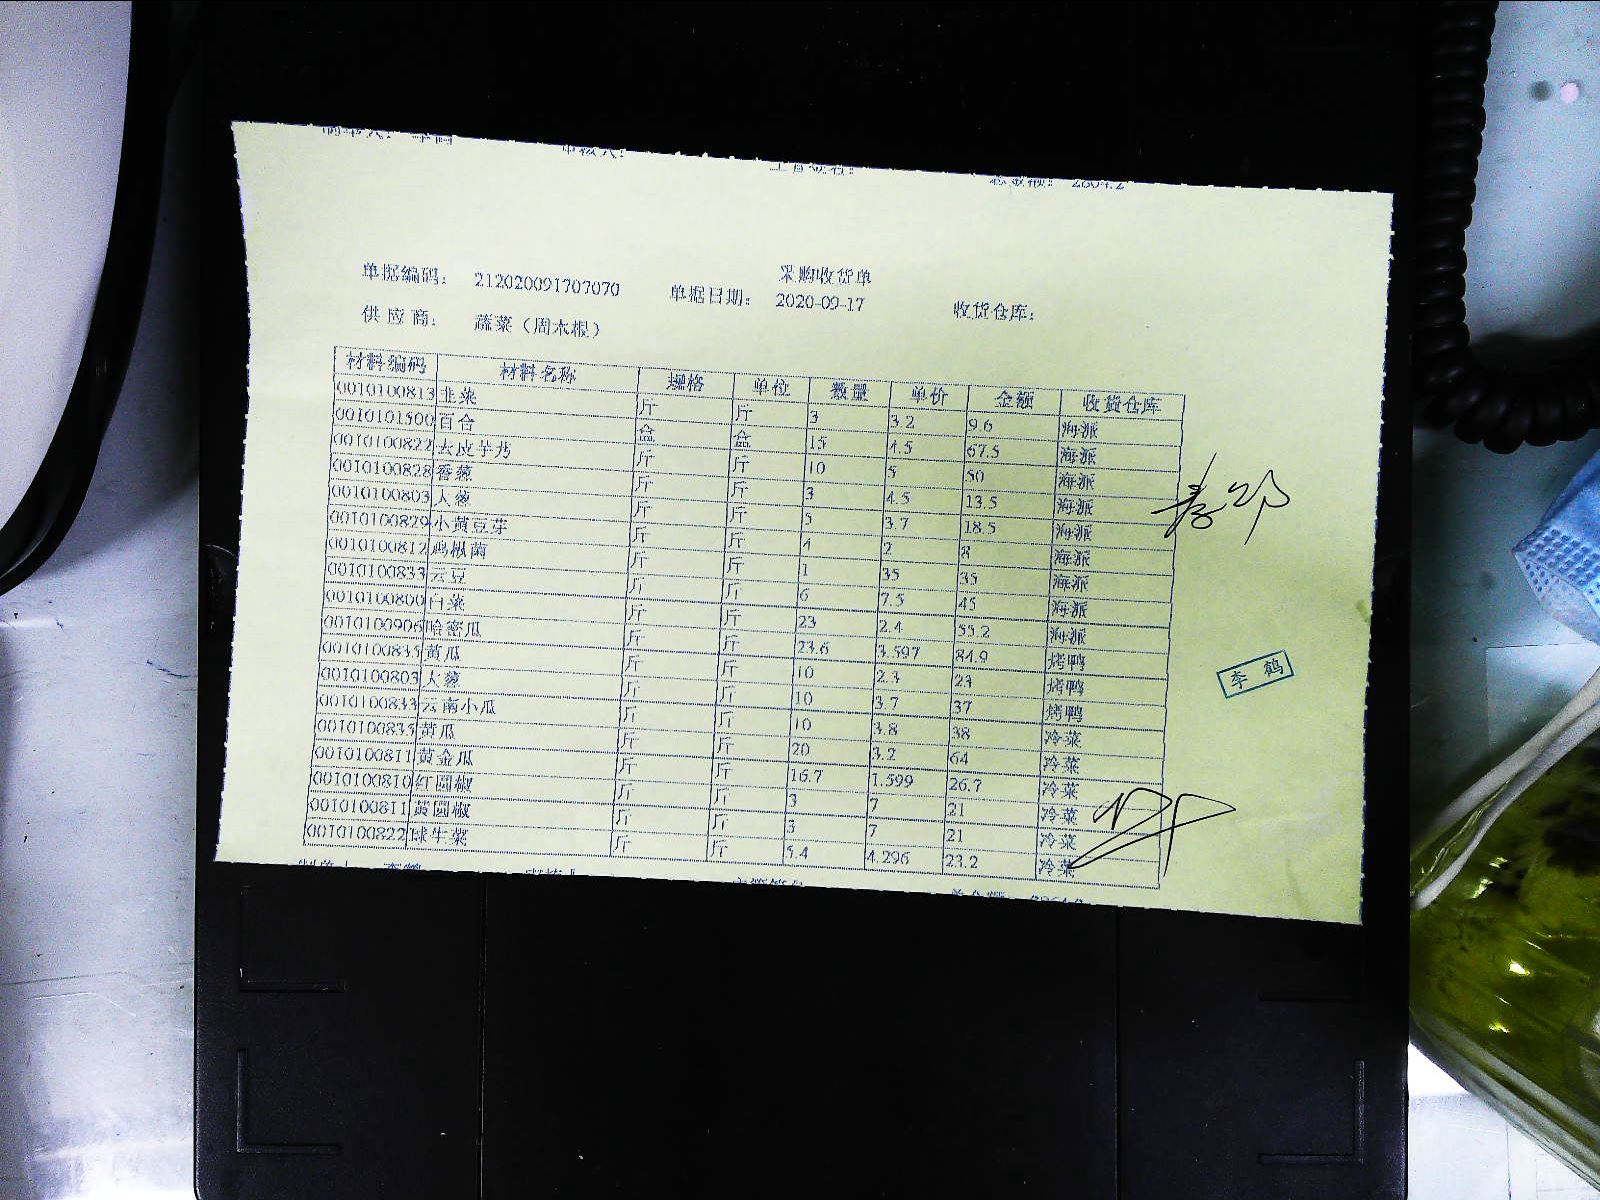 采购收货单
单据编码: 212020091707070 单据日期: 2020-09-17 收货仓库:
供应商: 蔬菜(周木根)
材料编码 材料名称 规格 单位 数量 单价 金额 收货仓库
0010100813 韭菜 斤 斤 3 3.2 9.6 海派
0010101500 百合 盒 盒 15 4.5 67.5 海派
0010100822 去皮芋艿 斤 斤 10 5 50 海派
0010100828 香葱 斤 斤 3 4.5 13.5 海派
0010100803 大葱 斤 斤 5 3.7 18.5 海派
0010100829 小黄豆芽 斤 斤 4 2 8 海派
0010100812 鸡枞菌 斤 斤 1 35 35 海派
0010100833 云豆 斤 斤 6 7.5 45 海派
0010100800 白菜 斤 斤 23 2.4 55.2 海派
0010100906 哈密瓜 斤 斤 23.6 3.597 84.9 烤鸭
0010100835 黄瓜 斤 斤 10 2.3 23 烤鸭
0010100803 大葱 斤 斤 10 3.7 37 烤鸭
0010100833 云南小瓜 斤 斤 10 3.8 38 冷菜
0010100835 黄瓜 斤 斤 20 3.2 64 冷菜
0010100811 黄金瓜 斤 斤 16.7 1.599 26.7 冷菜
0010100810 红圆椒 斤 斤 3 7 21 冷菜
0010100811 黄圆椒 斤 斤 3 7 21 冷菜
0010100822 球生菜 斤 斤 5.4 4.296 23.2 冷菜
李鹤